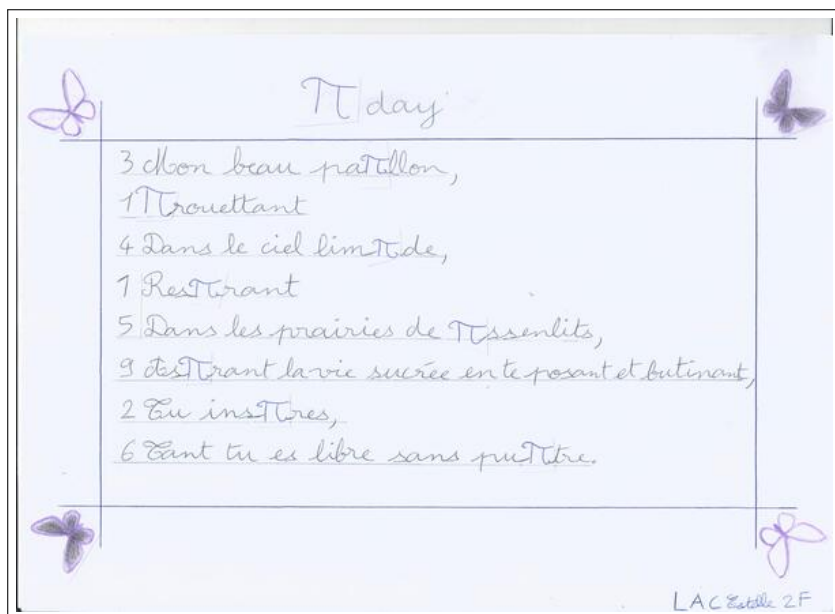 π day
3 Mon beau paπllon,
1 πrouettant
4 Dans le ciel limπde,
1 Resπrant
5 Dans les prairies de πssenlits,
9 Asπrant la vie sucrée en te posant et butinant,
2 Tu insπres,
6 Tant tu es libre sans puπtre.
LAC Estelle 2F